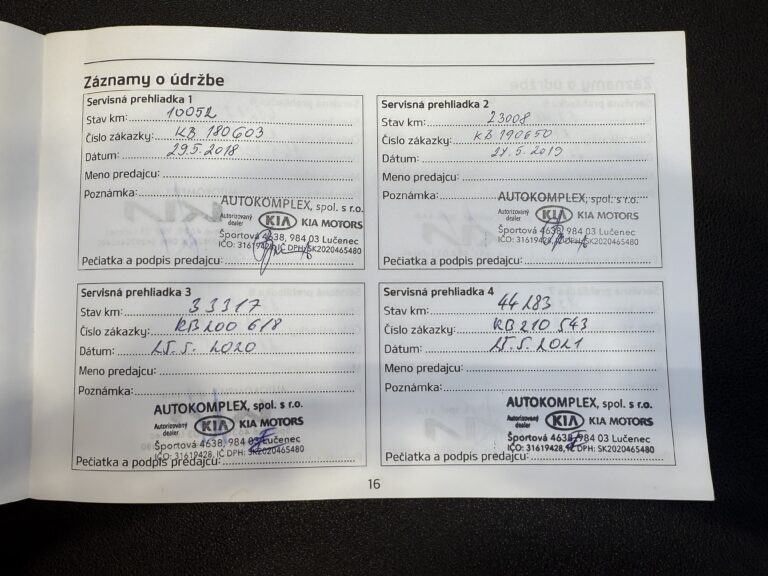 Záznamy o údržbe
Servisná prehliadka 1
Stav km: 10052
Číslo zákazky: KB 180603
Dátum: 29.5.2018
Meno predajcu:
Poznámka:
AUTOKOMPLEX, spol. s r.o.
Autorizovaný dealer KIA KIA MOTORS
Športová 4638, 984 03 Lučenec
IČO: 31619428, IČ DPH: SK2020465480
Pečiatka a podpis predajcu:
Servisná prehliadka 2
Stav km: 23008
Číslo zákazky: KB 190650
Dátum: 27.5.2019
Meno predajcu:
Poznámka:
AUTOKOMPLEX, spol. s r.o.
Autorizovaný dealer KIA KIA MOTORS
Športová 4638, 984 03 Lučenec
IČO: 31619428, IČ DPH: SK2020465480
Pečiatka a podpis predajcu:
Servisná prehliadka 3
Stav km: 33317
Číslo zákazky: KB200 618
Dátum: 25.5. 2020
Meno predajcu:
Poznámka:
AUTOKOMPLEX, spol. s r.o.
Autorizovaný dealer KIA KIA MOTORS
Športová 4638, 984 03 Lučenec
IČO: 31619428, IČ DPH: SK2020465480
Pečiatka a podpis predajcu:
Servisná prehliadka 4
Stav km: 44283
Číslo zákazky: KB210 543
Dátum: 25.5. 2021
Meno predajcu:
Poznámka:
AUTOKOMPLEX, spol. s r.o.
Autorizovaný dealer KIA KIA MOTORS
Športová 4638, 984 03 Lučenec
IČO: 31619428, IČ DPH: SK2020465480
Pečiatka a podpis predajcu:
16